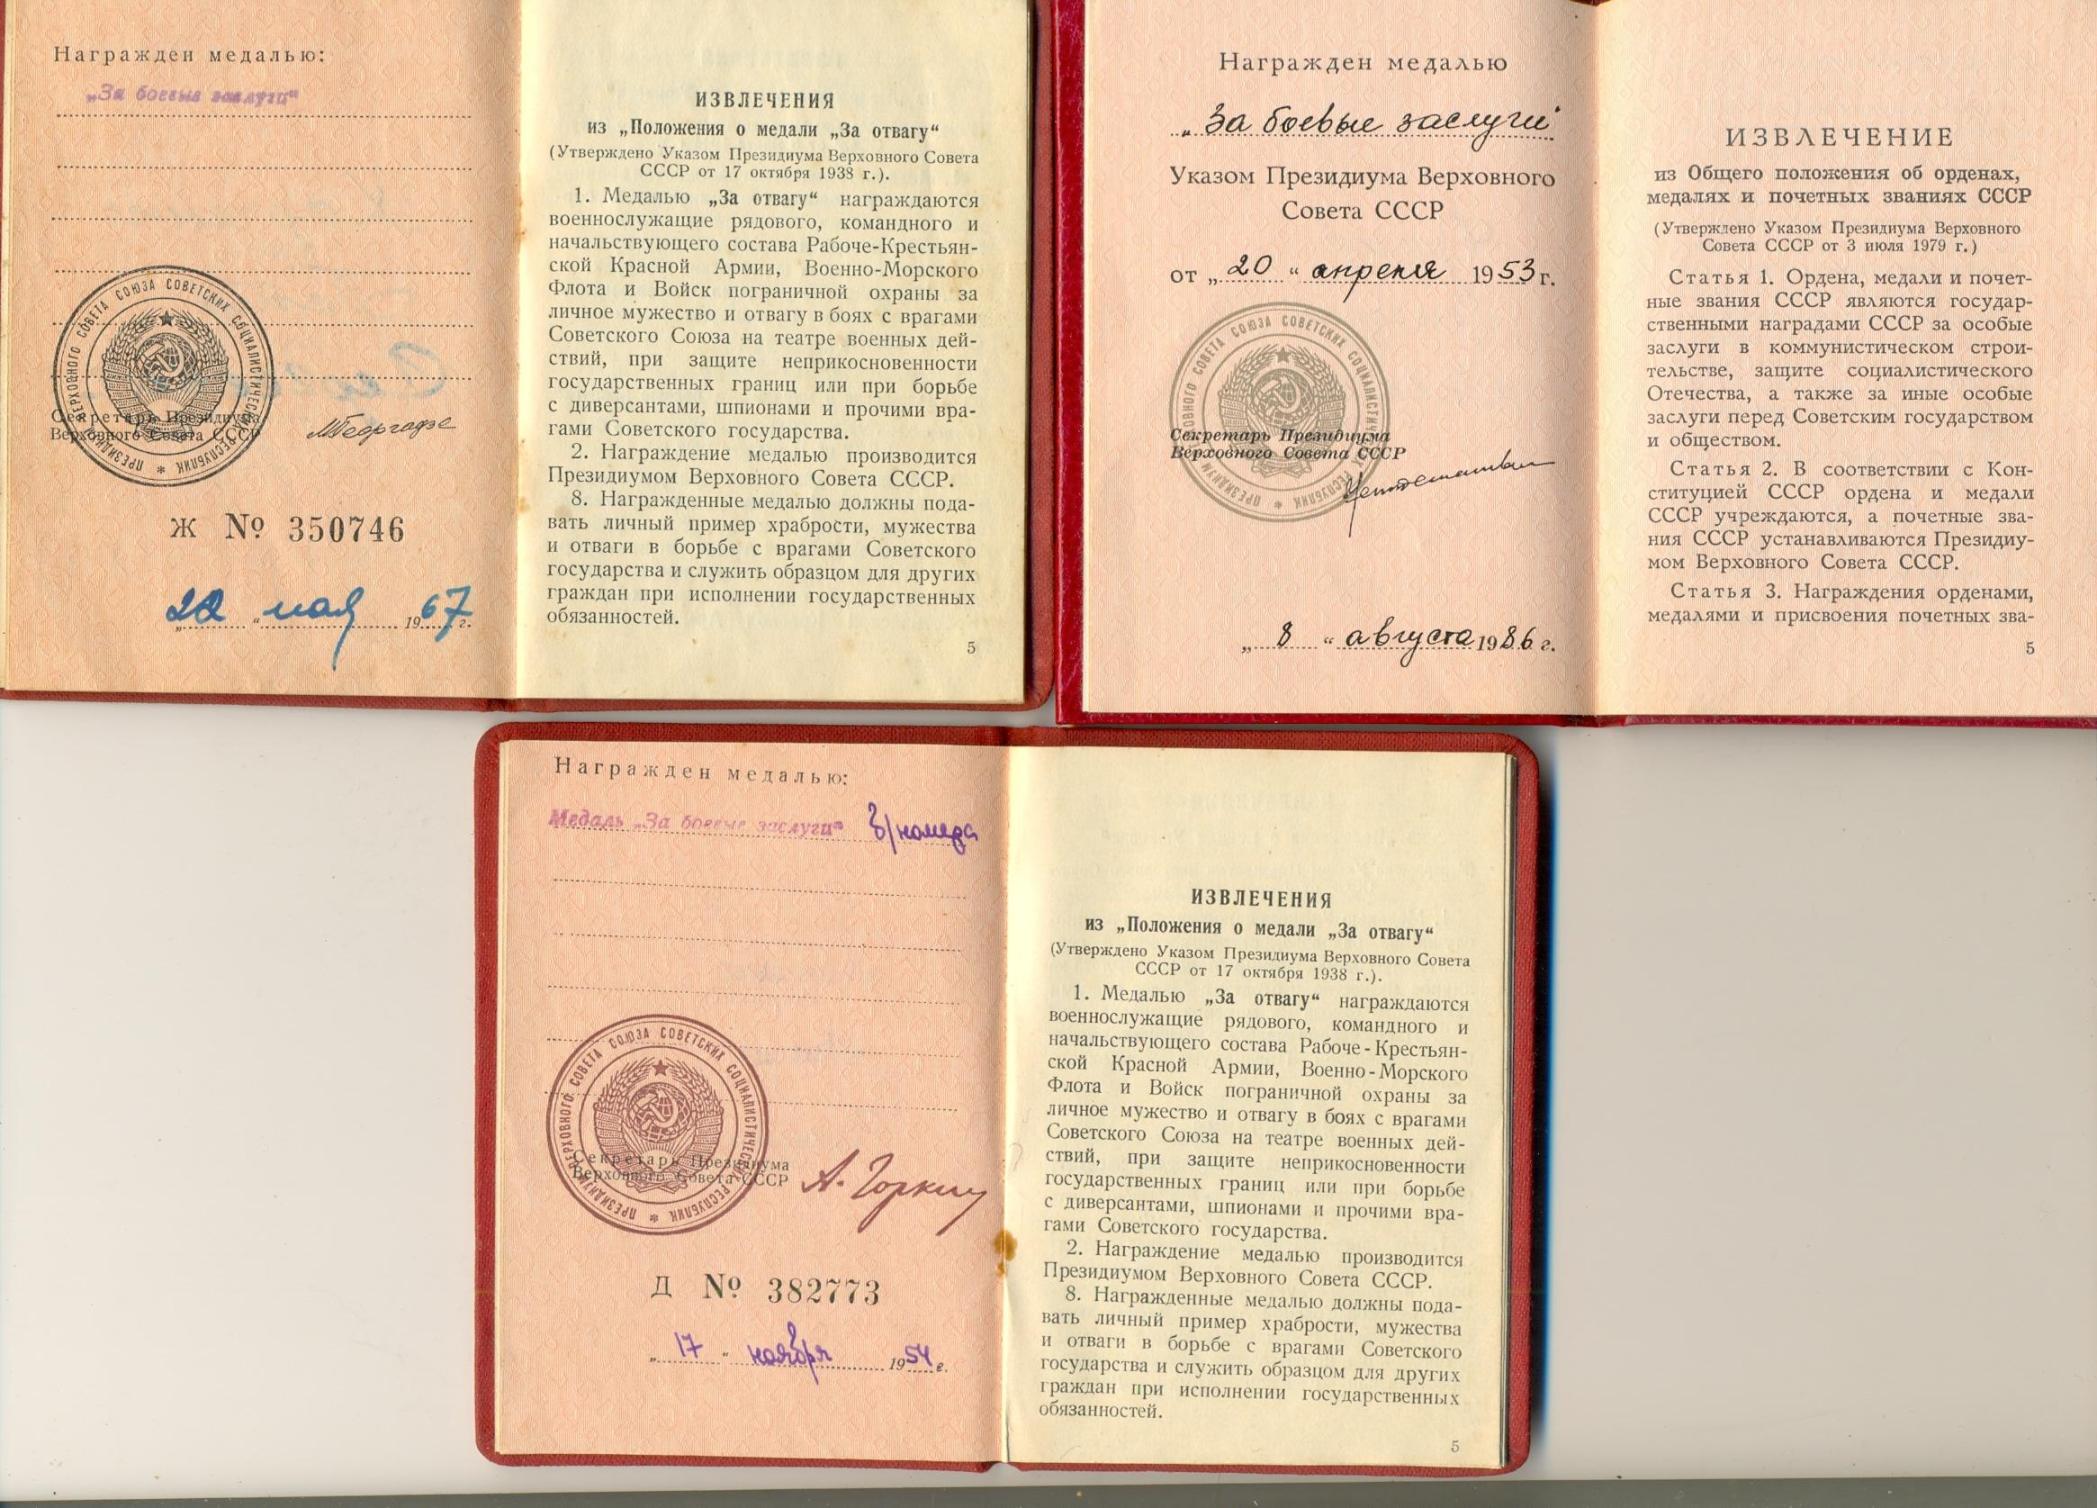 Награжден медалью:
„За боевые заслуги“
ПРЕЗИДИУМ ВЕРХОВНОГО СОВЕТА СОЮЗА СОВЕТСКИХ СОЦИАЛИСТИЧЕСКИХ РЕСПУБЛИК *
Секретарь Президиума
Верховного Совета СССР
МГеоргадзе
Ж № 350746
„22“ мая 1967 г.
ИЗВЛЕЧЕНИЯ
из „Положения о медали „За отвагу“
(Утверждено Указом Президиума Верховного Совета
СССР от 17 октября 1938 г.).
1. Медалью „За отвагу“ награждаются
военнослужащие рядового, командного и
начальствующего состава Рабоче-Крестьян-
ской Красной Армии, Военно-Морского
Флота и Войск пограничной охраны за
личное мужество и отвагу в боях с врагами
Советского Союза на театре военных дей-
ствий, при защите неприкосновенности
государственных границ или при борьбе
с диверсантами, шпионами и прочими вра-
гами Советского государства.
2. Награждение медалью производится
Президиумом Верховного Совета СССР.
8. Награжденные медалью должны пода-
вать личный пример храбрости, мужества
и отваги в борьбе с врагами Советского
государства и служить образцом для других
граждан при исполнении государственных
обязанностей.
5
Награжден медалью
„За боевые заслуги“
Указом Президиума Верховного
Совета СССР
от „20“ апреля 1953 г.
ПРЕЗИДИУМ ВЕРХОВНОГО СОВЕТА СОЮЗА СОВЕТСКИХ СОЦИАЛИСТИЧЕСКИХ РЕСПУБЛИК *
Секретарь Президиума
Верховного Совета СССР
„8“ августа 1986 г.
ИЗВЛЕЧЕНИЕ
из Общего положения об орденах,
медалях и почетных званиях СССР
(Утверждено Указом Президиума Верховного
Совета СССР от 3 июля 1979 г.)
Статья 1. Ордена, медали и почет-
ные звания СССР являются государ-
ственными наградами СССР за особые
заслуги в коммунистическом строи-
тельстве, защите социалистического
Отечества, а также за иные особые
заслуги перед Советским государством
и обществом.
Статья 2. В соответствии с Кон-
ституцией СССР ордена и медали
СССР учреждаются, а почетные зва-
ния СССР устанавливаются Президиу-
мом Верховного Совета СССР.
Статья 3. Награждения орденами,
медалями и присвоения почетных зва-
5
Награжден медалью:
Медаль „За боевые заслуги“ б/номера
ПРЕЗИДИУМ ВЕРХОВНОГО СОВЕТА СОЮЗА СОВЕТСКИХ СОЦИАЛИСТИЧЕСКИХ РЕСПУБЛИК *
Секретарь Президиума
Верховного Совета СССР
А. Горкин
Д № 382773
„17“ ноября 1954 г.
ИЗВЛЕЧЕНИЯ
из „Положения о медали „За отвагу“
(Утверждено Указом Президиума Верховного Совета
СССР от 17 октября 1938 г.).
1. Медалью „За отвагу“ награждаются
военнослужащие рядового, командного и
начальствующего состава Рабоче-Крестьян-
ской Красной Армии, Военно-Морского
Флота и Войск пограничной охраны за
личное мужество и отвагу в боях с врагами
Советского Союза на театре военных дей-
ствий, при защите неприкосновенности
государственных границ или при борьбе
с диверсантами, шпионами и прочими вра-
гами Советского государства.
2. Награждение медалью производится
Президиумом Верховного Совета СССР.
8. Награжденные медалью должны пода-
вать личный пример храбрости, мужества
и отваги в борьбе с врагами Советского
государства и служить образцом для других
граждан при исполнении государственных
обязанностей.
5